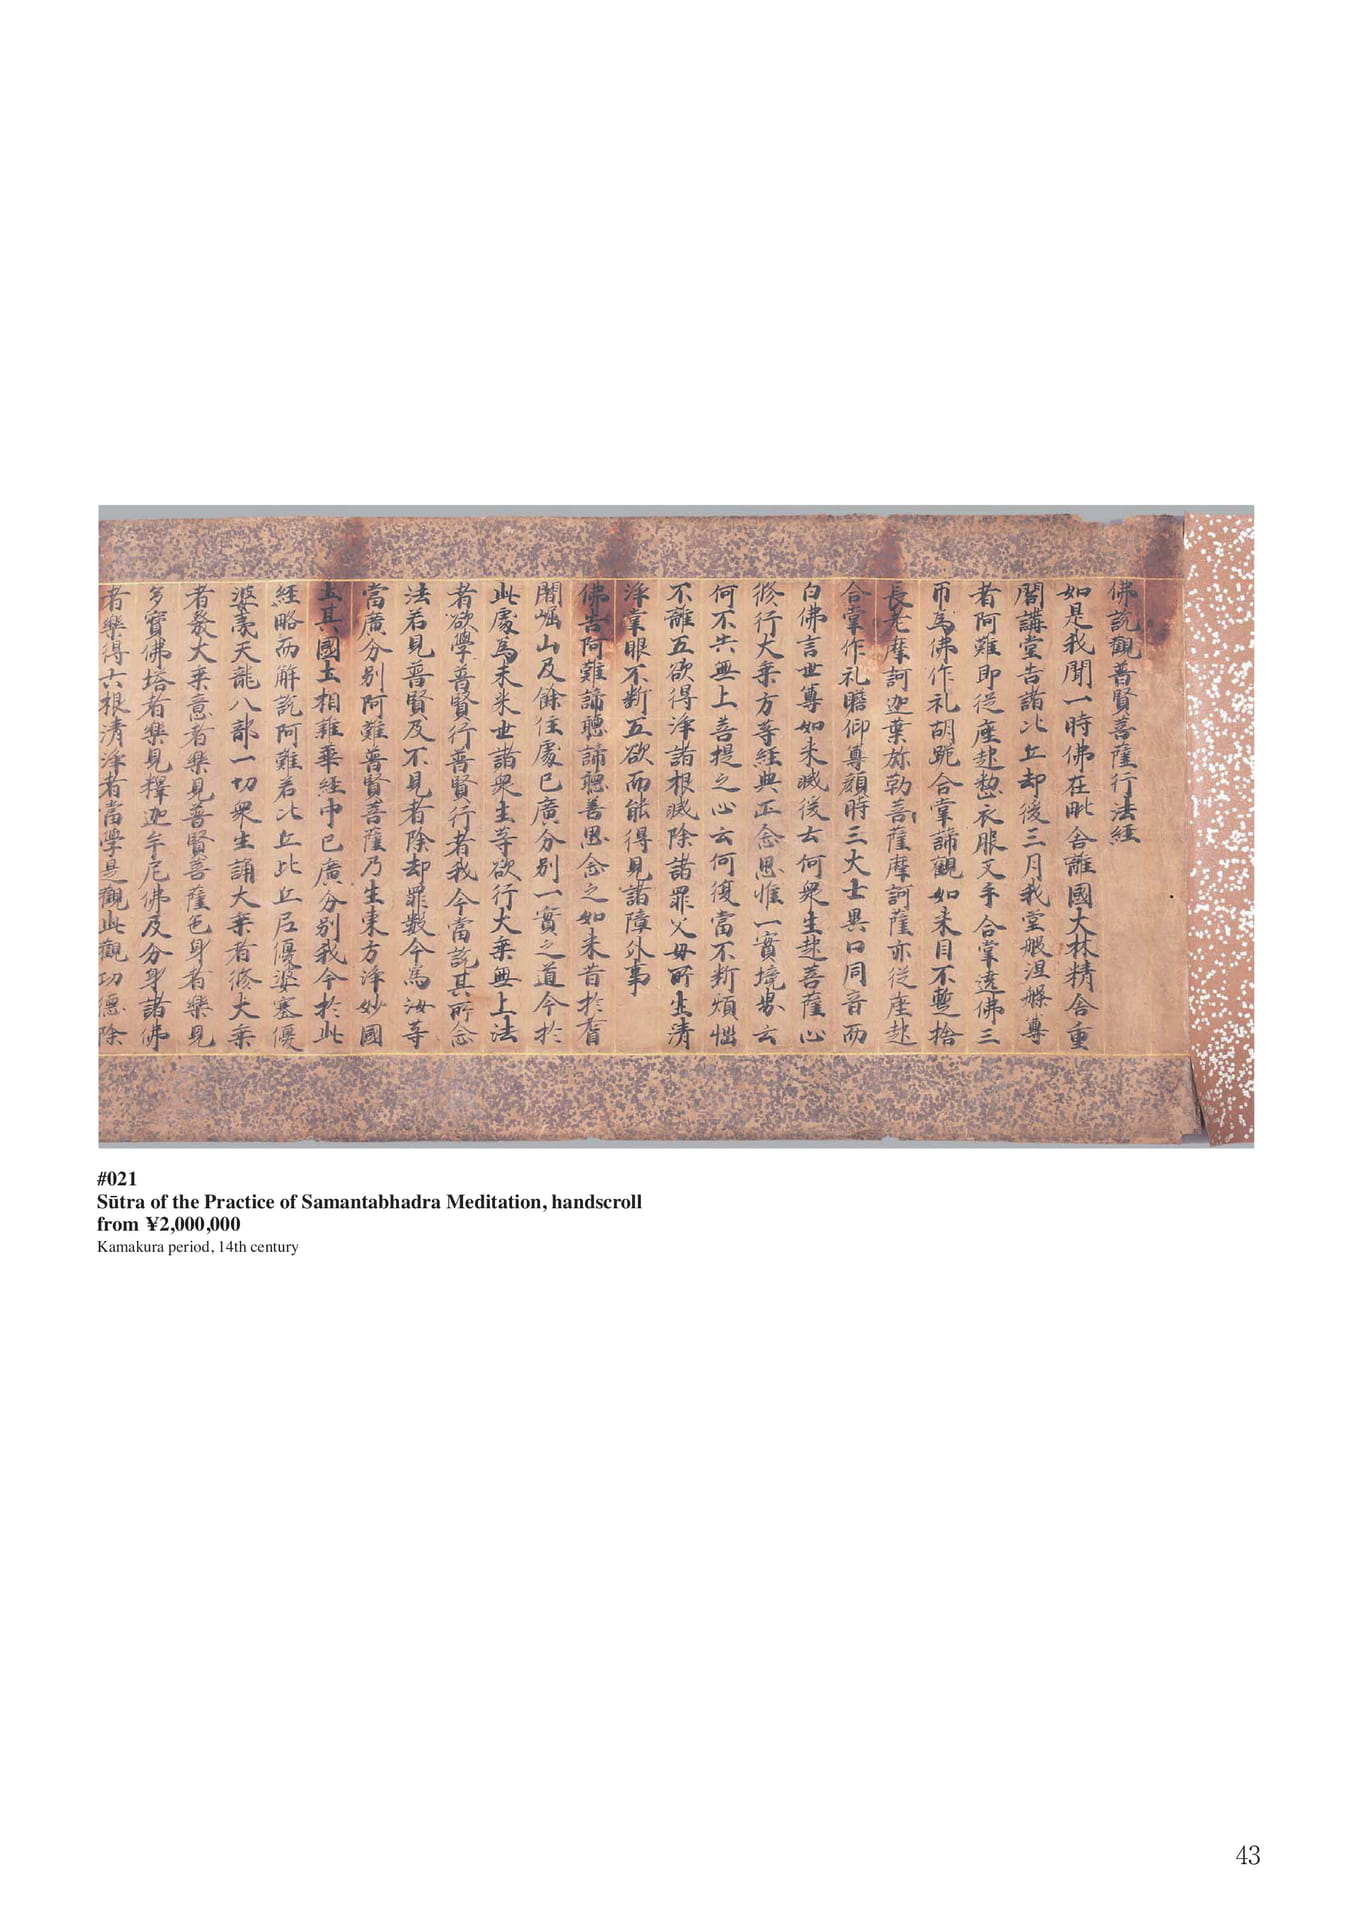 佛說觀普賢菩薩行法經
如是我聞一時佛在毗舍離國大林精舍重
閣講堂告諸比丘却後三月我當般涅槃尊
者阿難即從座起整衣服叉手合掌遶佛三
帀為佛作礼胡跪合掌諦觀如来目不暫捨
長老摩訶迦葉弥勒菩薩摩訶薩亦従座起
合掌作礼瞻仰尊顏時三大士異口同音而
白佛言世尊如来滅後云何衆生起菩薩心
修行大乗方等經典正念思惟一實境界云
何不失無上菩提之心云何復當不断煩惱
不離五欲得淨諸根滅除諸罪父母所生清
淨常眼不断五欲而能得見諸障外事
佛告阿難諦聴諦聴善思念之如来昔於耆
闍崛山及餘住處已廣分別一實之道今於
此處為未来世諸衆生等欲行大乗無上法
者欲學普賢行普賢行者我今當說其所念
法若見普賢及不見者除却罪數今為汝等
當廣分別阿難普賢菩薩乃生東方淨妙國
土其國土相雜華經中已廣分別我今於此
經略而解說阿難若比丘比丘尼優婆塞優
婆夷天龍八部一切衆生誦大乗者修大乗
者發大乗意者樂見普賢菩薩色身者樂見
多寶佛塔者樂見釋迦牟尼佛及分身諸佛
者樂得六根清淨者當學是觀此觀功德除
#021
Sūtra of the Practice of Samantabhadra Meditation, handscroll
from ¥2,000,000
Kamakura period, 14th century
43